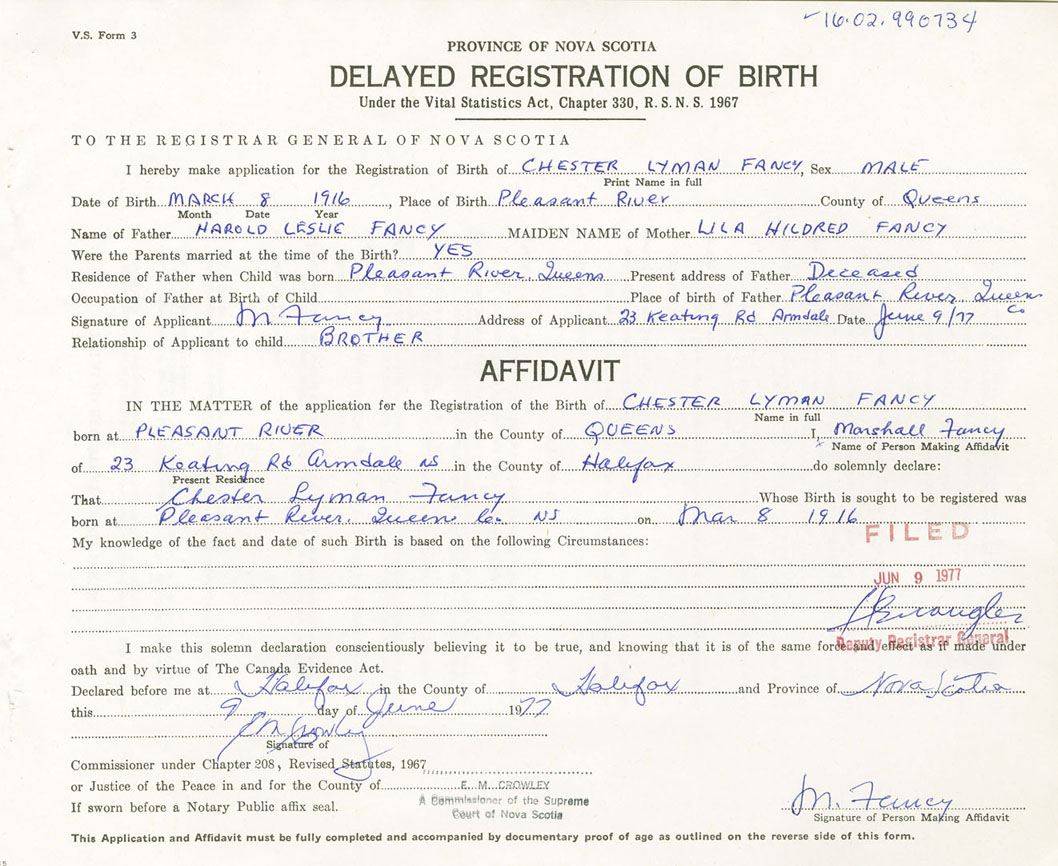 16.02.990734
V.S. Form 3
PROVINCE OF NOVA SCOTIA
DELAYED REGISTRATION OF BIRTH
Under the Vital Statistics Act, Chapter 330, R.S.N.S. 1967
TO THE REGISTRAR GENERAL OF NOVA SCOTIA
I hereby make application for the Registration of Birth of CHESTER LYMAN FANCY, Sex MALE
Print Name in full
Date of Birth MARCH 8 1916, Place of Birth Pleasant River County of Queens
Month Date Year
Name of Father HAROLD LESLIE FANCY MAIDEN NAME of Mother LILA HILDRED FANCY
Were the Parents married at the time of the Birth? YES
Residence of Father when Child was born Pleasant River, Queens Present address of Father Deceased
Occupation of Father at Birth of Child Place of birth of Father Pleasant River Queens Co
Signature of Applicant M. Fancy Address of Applicant 23 Keating Rd Armdale Date June 9/77
Relationship of Applicant to child BROTHER
AFFIDAVIT
IN THE MATTER of the application for the Registration of the Birth of CHESTER LYMAN FANCY
Name in full
born at PLEASANT RIVER in the County of QUEENS I, Marshall Fancy
Name of Person Making Affidavit
of 23 Keating Rd Armdale NS in the County of Halifax do solemnly declare:
Present Residence
That Chester Lyman Fancy Whose Birth is sought to be registered was
born at Pleasant River, Queens Co. NS on Mar 8 1916
FILED
My knowledge of the fact and date of such Birth is based on the following Circumstances:
JUN 9 1977
Deputy Registrar General
I make this solemn declaration conscientiously believing it to be true, and knowing that it is of the same force and effect as if made under
oath and by virtue of The Canada Evidence Act.
Declared before me at Halifax in the County of Halifax and Province of Nova Scotia
this 9 day of June 1977
Signature of
Commissioner under Chapter 208, Revised Statutes, 1967
or Justice of the Peace in and for the County of E. M. CROWLEY
A Commissioner of the Supreme
Court of Nova Scotia
If sworn before a Notary Public affix seal.
M. Fancy
Signature of Person Making Affidavit
This Application and Affidavit must be fully completed and accompanied by documentary proof of age as outlined on the reverse side of this form.